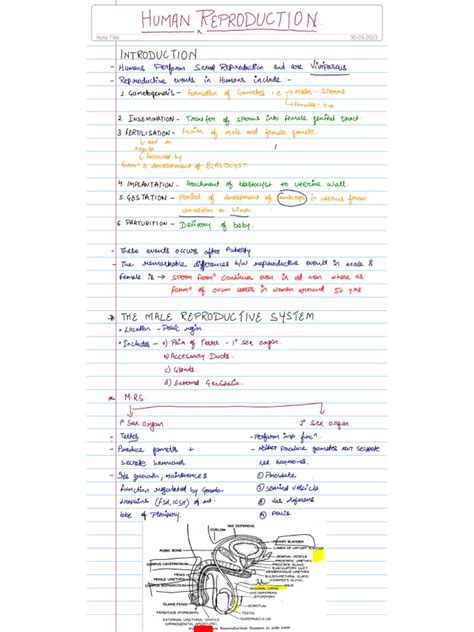 HUMAN REPRODUCTION.
Note Title
30-03-2023
INTRODUCTION
- Humans Perform Sexual Reproduction and are Viviparous.
- Reproductive events in Humans include :-
1. Gametogenesis - Formation of Gametes i.e → male - sperms
→ female - ova
2. INSEMINATION - Transfer of sperms into female genital tract.
3. FERTILISATION - fusion of male and female gamete
↓ followed by
& development of BLASTOCYST
4. IMPLANTATION - Attachment of blastocyst to uterine wall.
5. GESTATION - Period of development of embryo in uterus from
6. PARTURITION - Delivery of baby.
- These events occurs after Puberty
- The remarkable difference b/w reproductive events in male &
Female is → sperm form^n continues even in old men where as
form^n of ovum ceases in women around 50 yrs
* THE MALE REPRODUCTIVE SYSTEM
• Location - Pelvic region
• Includes - a) Pair of Testes - 1° sex organ.
b) Accessory Ducts.
c) Glands
d) External Genitalia.
M.R.S.
1° Sex organ
2° Sex organ.
- Testes
- Perform imp func^n
- Produce gametes +
- Neither Produce gametes nor secrete
secrete hormones
sex hormones.
- Its growth, maintenance &
① Prostate
function regulated by Gonado-
② seminal vesicle
tropins (FSH, ICSH) of ant.
③ Vas deferens
lobe of Pituitary.
④ Penis
COELOM
VAS DEFERENS
URINARY BLADDER
LUMEN OF URINARY BLADDER
PUBIC BONE
SEMINAL VESICLE
PROSTATIC URETHRA
PROSTATE GLAND
CORPUS CAVERNOSUM
EJACULATORY DUCT
MEMBRANOUS URETHRA
PENIS
BULBOURETHRAL GLAND
FEMALE URETHRA
(COWPER'S GLAND)
CORPUS SPONGIOSUM
ANUS
VAS DEFERENS
EPIDIDYMIS
GLANS PENIS
SCROTUM
PREPUCE (FORESKIN)
TESTIS
EXTERNAL URETHRAL ORIFICE
GUBERNACULUM
(URINOGENITAL APERTURE)
Reproductive System in side view